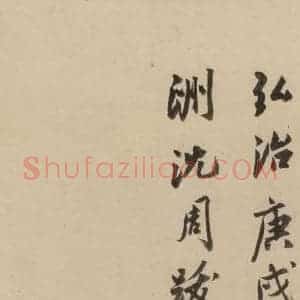 弘治庚戌
洲沈周跋
Shufaziliao.COM